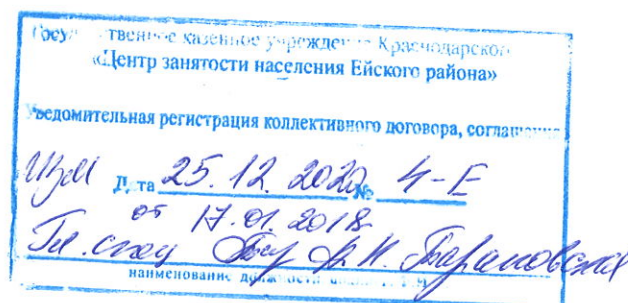 Государственное казенное учреждение Краснодарского
«Центр занятости населения Ейского района»
Уведомительная регистрация коллективного договора, соглашения
Изм Дата 25.12.2020 № 4-Е
от 17.01.2018
Гл. спец Барановская
наименование должности